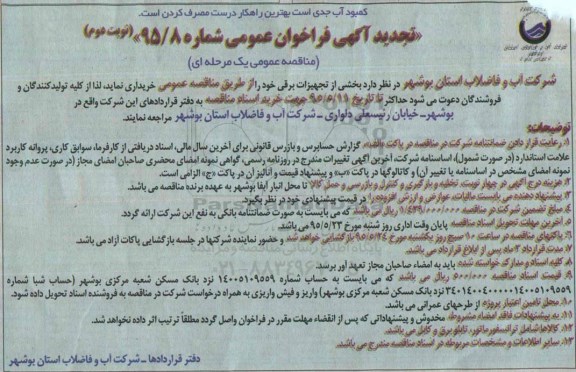 کمبود آب جدی است بهترین راهکار درست مصرف کردن است.
«تجدید آگهی فراخوان عمومی شماره ۹۵/۸» (نوبت دوم)
(مناقصه عمومی یک مرحله ای)
شرکت آب و فاضلاب استان بوشهر در نظر دارد بخشی از تجهیزات برقی خود را از طریق مناقصه عمومی خریداری نماید، لذا از کلیه تولیدکنندگان و
فروشندگان دعوت می شود حداکثر تا تاریخ ۹۵/۵/۱۱ جهت خرید اسناد مناقصه به دفتر قراردادهای این شرکت واقع در
بوشهر- خیابان رئیسعلی دلواری - شرکت آب و فاضلاب استان بوشهر مراجعه نمایند.
توضیحات:
۱. رعایت قرار دادن ضمانتنامه شرکت در مناقصه در پاکت «الف»، گزارش حسابرس و بازرس قانونی برای آخرین سال مالی، اسناد دریافتی از کارفرما، سوابق کاری، پروانه کاربرد
علامت استاندارد (در صورت شمول)، اساسنامه شرکت، آخرین آگهی تغییرات مندرج در روزنامه رسمی، گواهی نمونه امضای محضری صاحبان امضای مجاز (در صورت عدم وجود
نمونه امضای مشخص در اساسنامه یا تغییر آن) و کاتالوگها در پاکت «ب» و پیشنهاد قیمت و آنالیز آن در پاکت «ج» الزامی است.
۲. هزینه درج آگهی در چهار نوبت، تخلیه و بارگیری و کنترل و بازرسی و حمل کالا تا محل انبار آبفا بوشهر به عهده برنده مناقصه می باشد.
۳. پیشنهاد دهنده می بایست مالیات، عوارض و ارزش افزوده را در قیمت پیشنهادی خود در نظر بگیرد.
۴. مبلغ تضمین شرکت در مناقصه ریال می باشد که می بایست به صورت ضمانتنامه بانکی به نفع این شرکت ارائه گردد.
۵. آخرین مهلت تحویل اسناد مناقصه پایان وقت اداری روز شنبه مورخ ۹۵/۵/۲۳ می باشد.
۶. پاکتهای مناقصه در ساعت ۱۰ صبح روز یکشنبه مورخ ۹۵/۵/۲۴ بازگشایی خواهد شد و حضور نماینده شرکتها در جلسه بازگشایی پاکات آزاد می باشد.
۷. مدت قرارداد ۲ ماه پس از ابلاغ قرارداد می باشد.
۸. کلیه اسناد و مدارک خواسته شده باید به امضاء صاحبان مجاز تعهد آور برسند.
۹. قیمت اسناد مناقصه ۵۰۰/۰۰۰ ریال می باشد که می بایست به حساب شماره ۱۴۰۰۵۱۰۹۵۵۹ نزد بانک مسکن شعبه مرکزی بوشهر (حساب شبا شماره
نزد بانک مسکن شعبه مرکزی بوشهر) واریز و فیش واریزی به همراه درخواست شرکت در مناقصه به فروشنده اسناد تحویل داده شود.
۱۰. محل تامین اعتبار پروژه از طرحهای عمرانی می باشد.
۱۱. به پیشنهادات فاقد امضاء مشروط مخدوش و پیشنهاداتی که پس از انقضاء مهلت مقرر در فراخوان واصل گردد مطلقاً ترتیب اثر داده نخواهد شد.
۱۲. کالاها شامل ترانسفورماتور، تابلو برق و کابل می باشد.
۱۳. سایر اطلاعات و مشخصات مربوطه در اسناد مناقصه مندرج می باشد.
دفتر قراردادها - شرکت آب و فاضلاب استان بوشهر